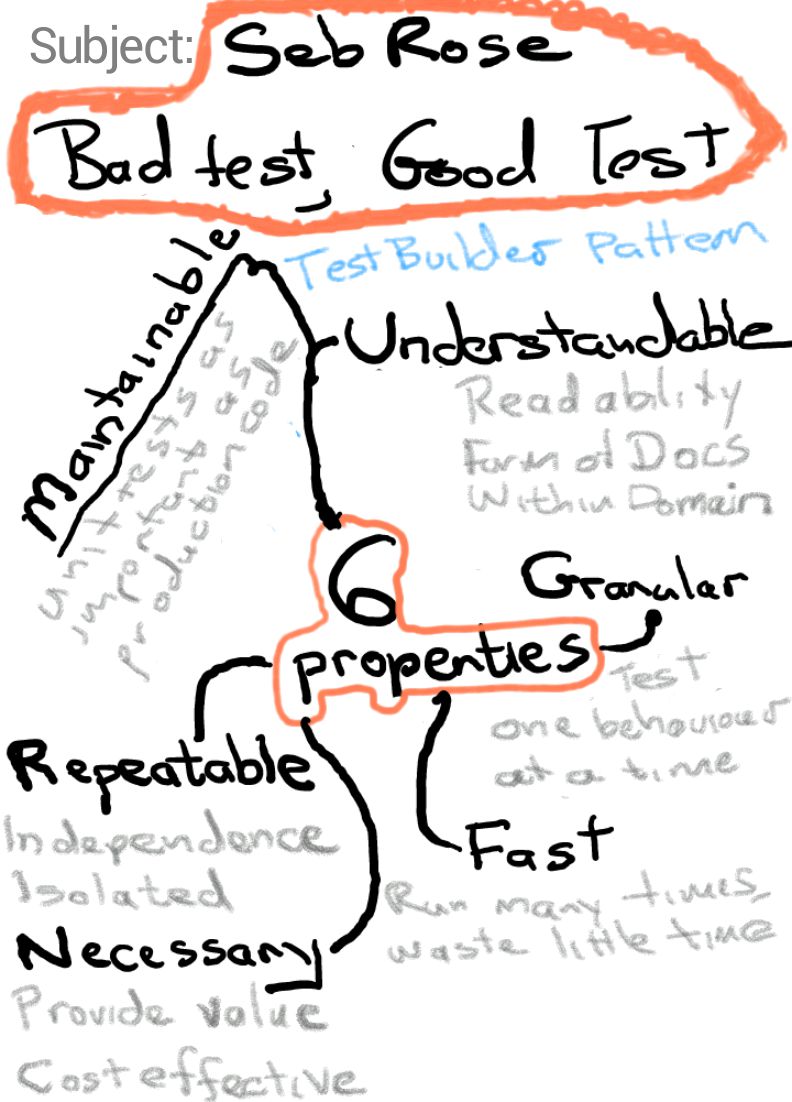 Subject: Seb Rose
Bad test, Good Test
Test Builder Pattern
Maintainable
unit tests as
important as
production code
Understandable
Readability
Form of Docs
Within Domain
6
properties
Granular
Test
one behaviour
at a time
Repeatable
Independence
Isolated
Fast
Run many times,
waste little time
Necessary
Provide value
Cost effective